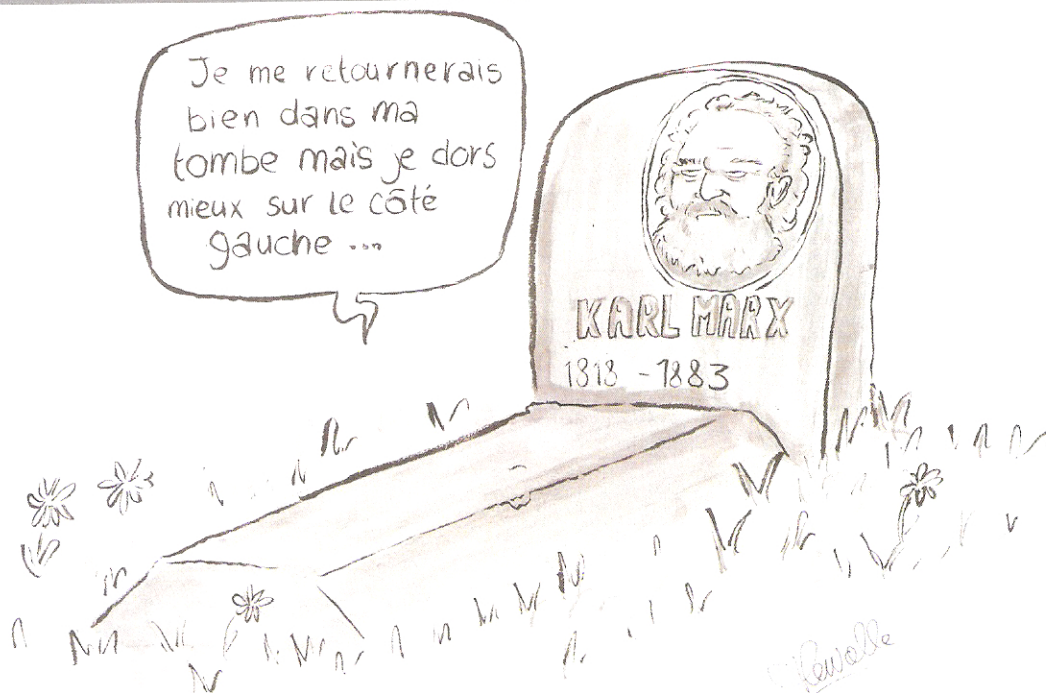 Je me retournerais
bien dans ma
tombe mais je dors
mieux sur le côté
gauche ...
KARL MARX
1818 - 1883